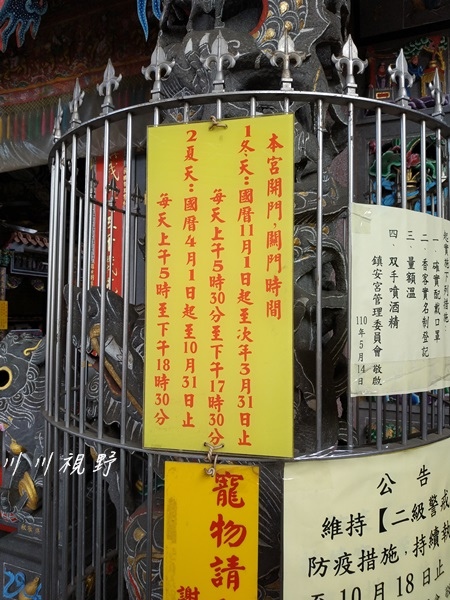 本宮開門，關門時間
1冬天：國曆11月1日起至次年3月31日止
每天上午5時30分至下午17時30分
2夏天：國曆4月1日起至10月31日止
每天上午5時至下午18時30分
起實施下列措施
一、確實配戴口罩
二、香客實名制登記
三、量額溫
四、双手噴酒精
鎮安宮管理委員會 敬啟
110年5月14日
寵物請
謝
公告
維持【二級警戒
防疫措施，持續執
至10月18日止
川川視野